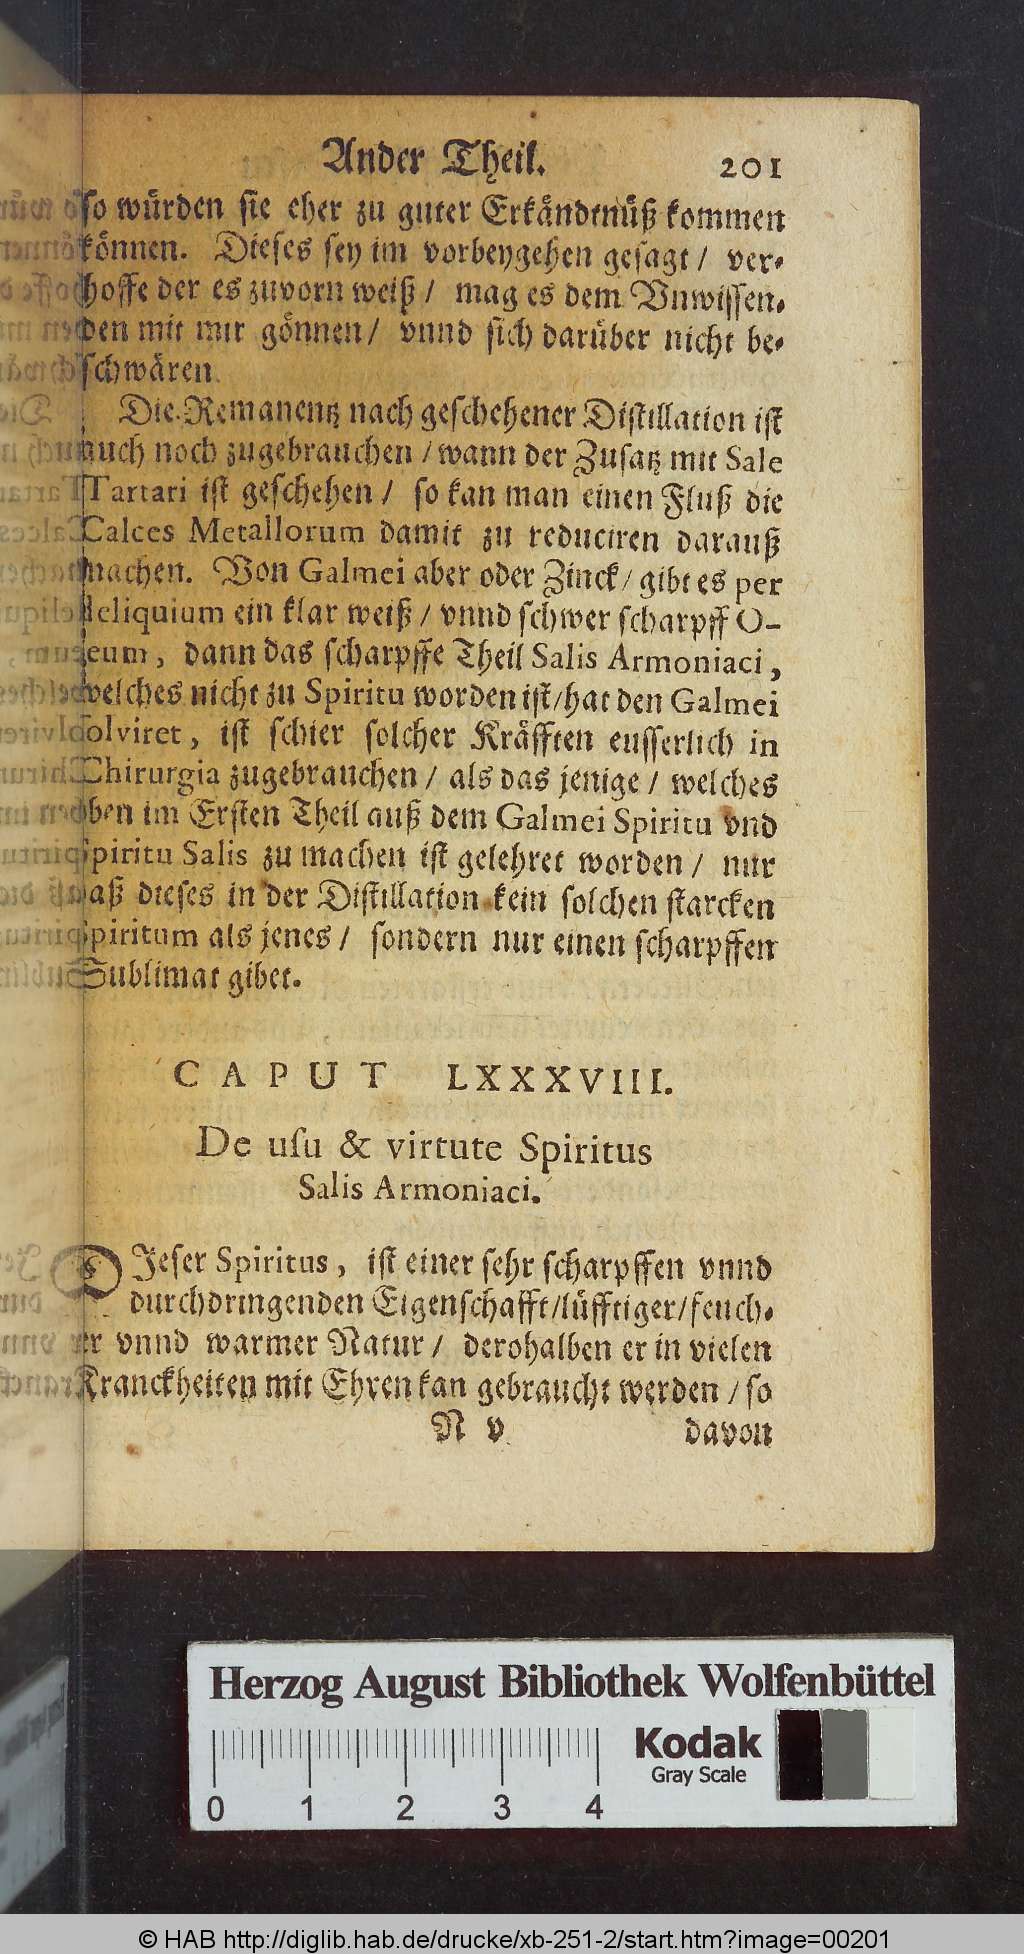 Ander Theil. 201
so würden sie eher zu guter Erkändtnüß kommen
können. Dieses sey im vorbeygehen gesagt / ver-
hoffe der es zuvorn weiß / mag es dem Vnwissen-
den mit mir gönnen / vnnd sich darüber nicht be-
schwären.
Die Remanentz nach geschehener Distillation ist
auch noch zugebrauchen / wann der Zusatz mit Sale
Tartari ist geschehen / so kan man einen Fluß die
Calces Metallorum damit zu reduciren darauß
machen. Von Galmei aber oder Zinck / gibt es per
deliquium ein klar weiß / vnnd schwer scharpff O-
leum, dann das scharpffe Theil Salis Armoniaci,
welches nicht zu Spiritu worden ist / hat den Galmei
solviret, ist schier solcher Kräfften eusserlich in
Chirurgia zugebrauchen / als das jenige / welches
oben im Ersten Theil auß dem Galmei Spiritu vnd
Spiritu Salis zu machen ist gelehret worden / nur
daß dieses in der Distillation kein solchen starcken
Spiritum als jenes / sondern nur einen scharpffen
Sublimat gibet.
CAPUT LXXXVIII.
De usu & virtute Spiritus
Salis Armoniaci.
DJeser Spiritus, ist einer sehr scharpffen vnnd
durchdringenden Eigenschafft / lüfftiger / feuch-
ter vnnd warmer Natur / derohalben er in vielen
Kranckheiten mit Ehren kan gebraucht werden / so
N v davon
Herzog August Bibliothek Wolfenbüttel
Kodak
Gray Scale
0 1 2 3 4
© HAB http://diglib.hab.de/drucke/xb-251-2/start.htm?image=00201